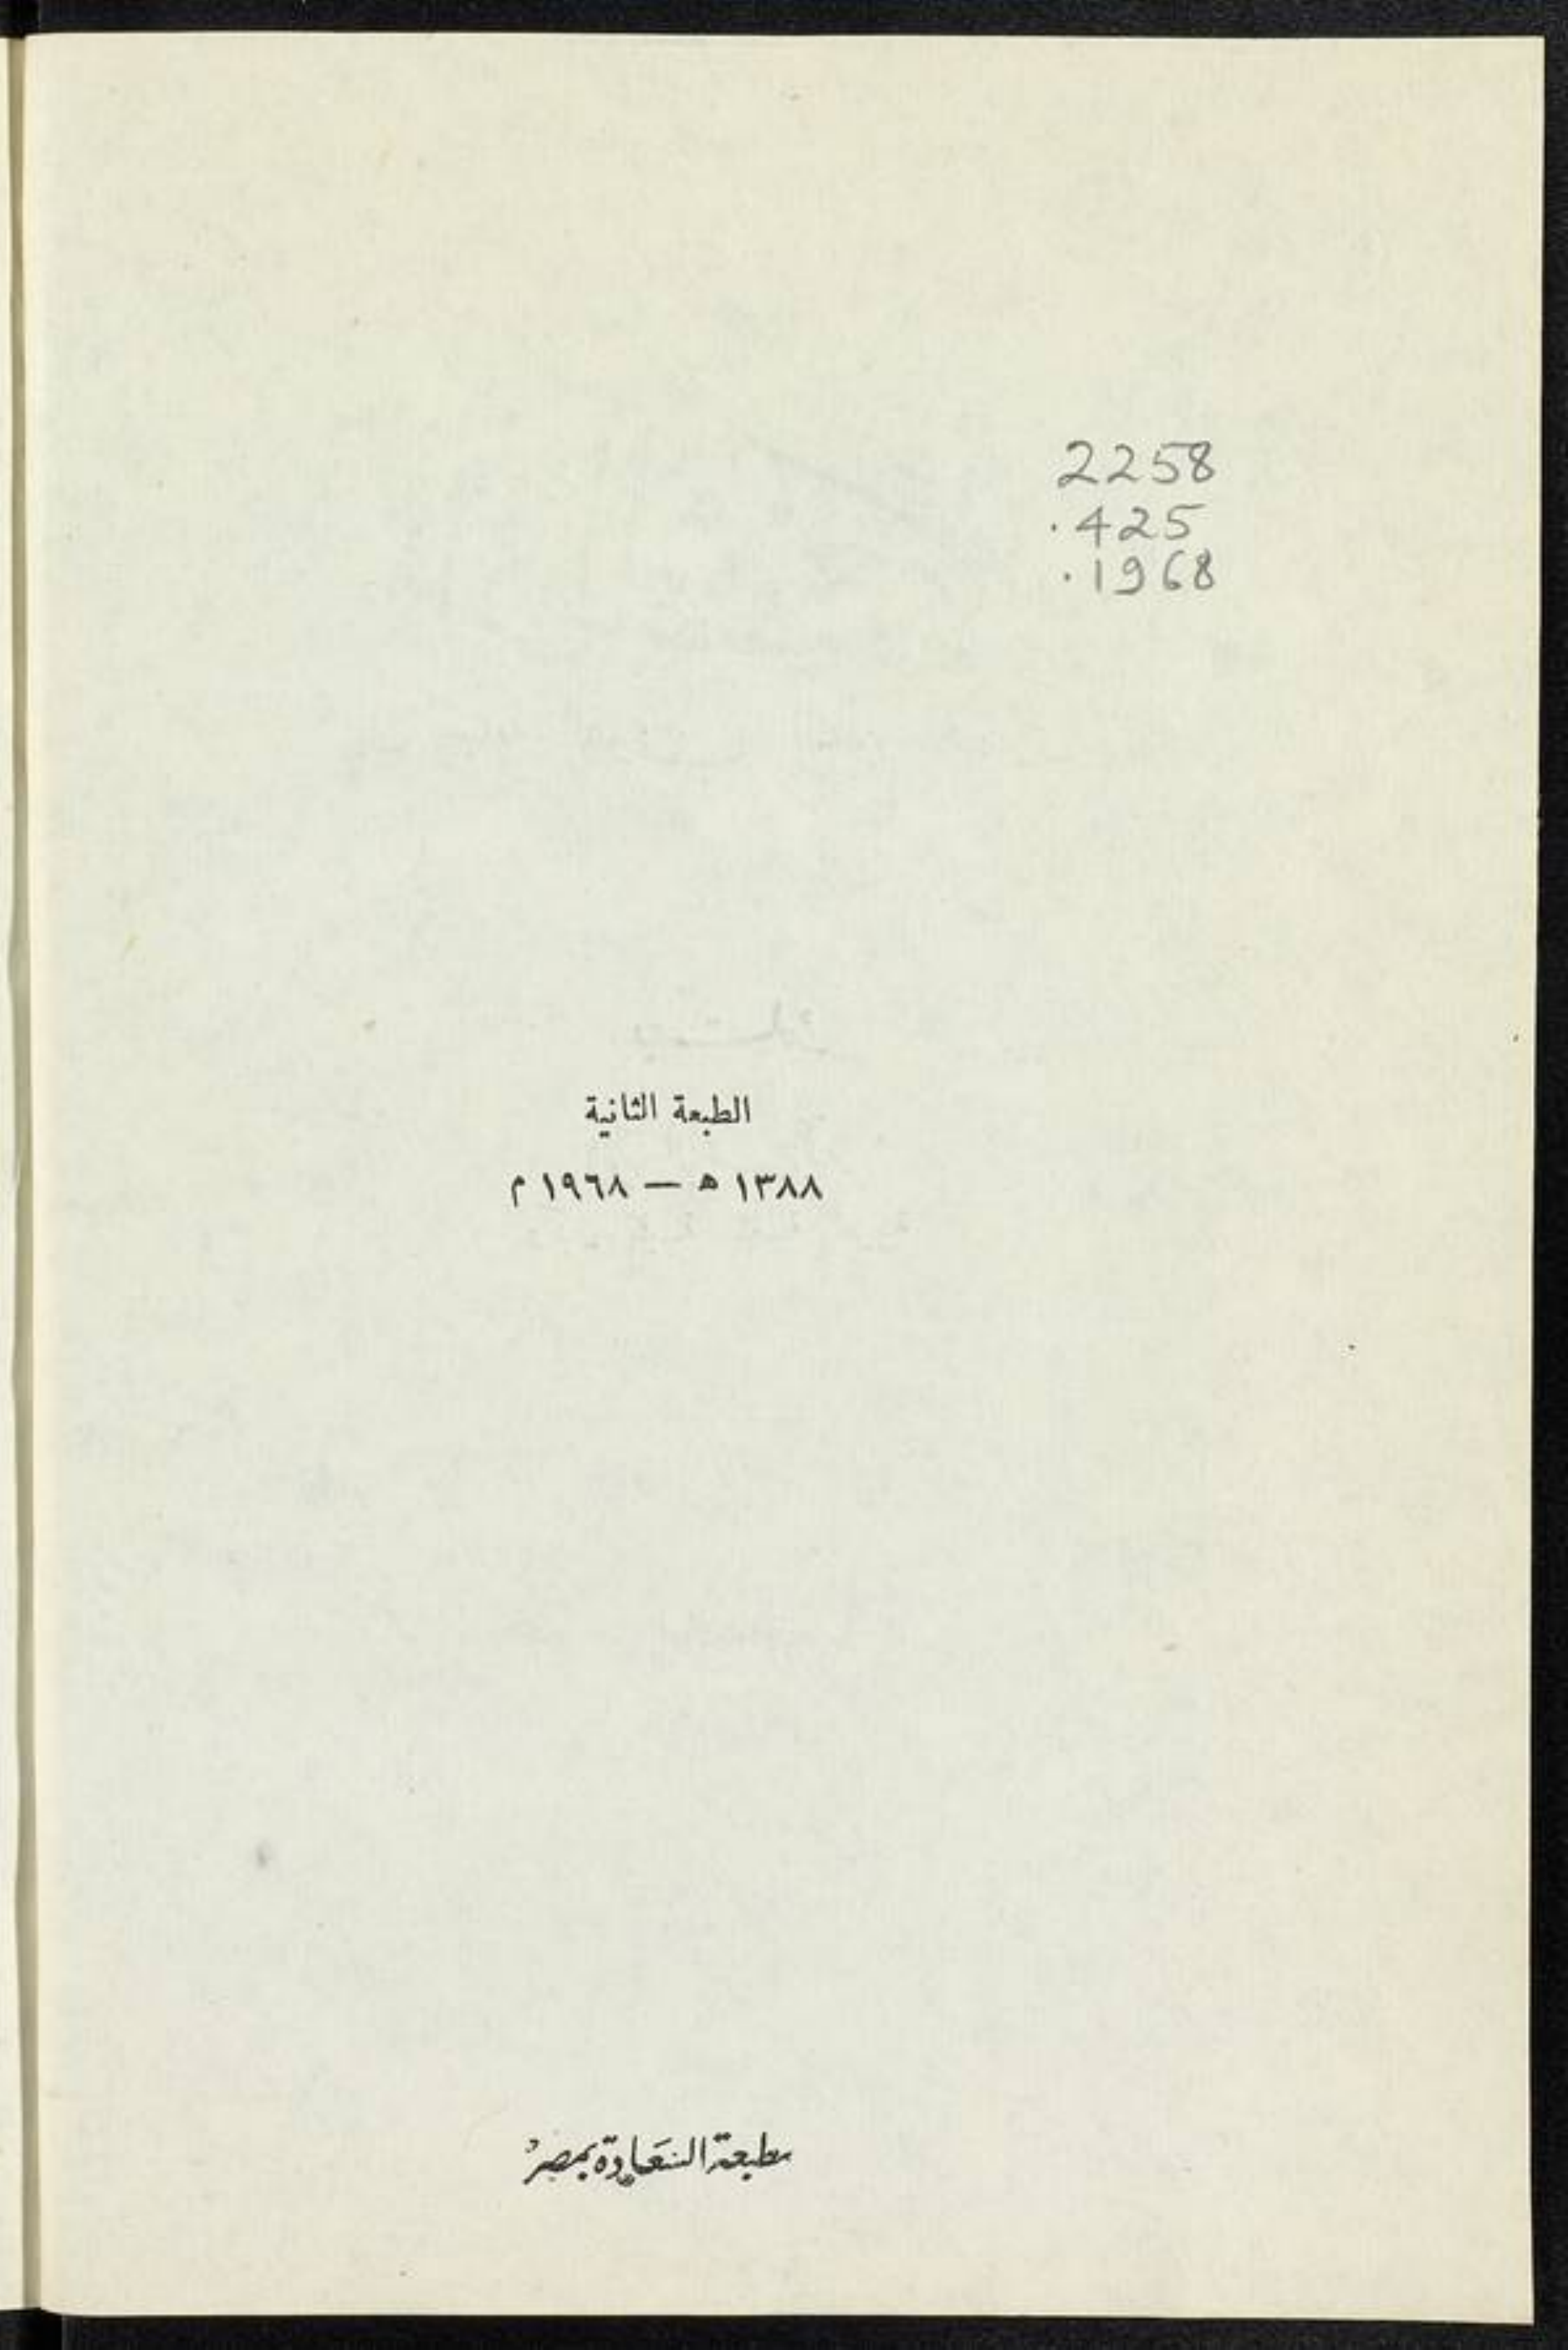 2258
.425
.1968
الطبعة الثانية
١٣٨٨ ه — ١٩٦٨ م
مطبعة السعادة بمصر